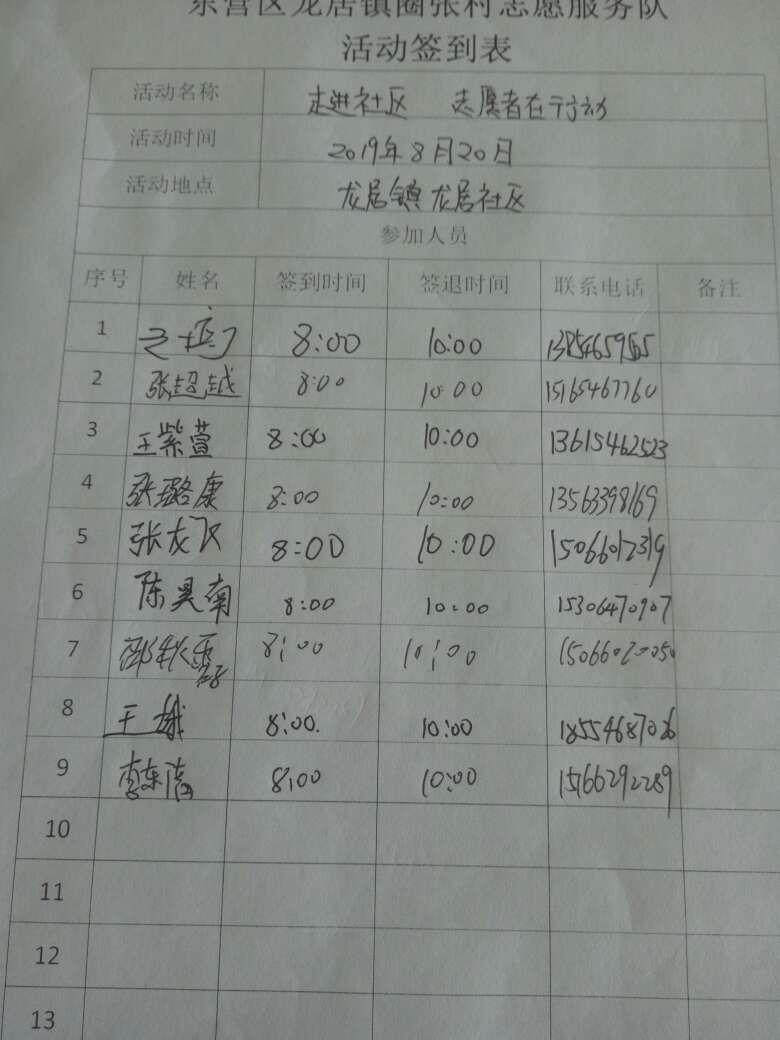 东营区龙居镇圈张村志愿服务队
活动签到表
活动名称 走进社区 志愿者在行动
活动时间 2019年8月20日
活动地点 龙居镇龙居社区
参加人员
序号 姓名 签到时间 签退时间 联系电话 备注
1 8:00 10:00
2 张超越 8:00 10:00 15165467760
3 王紫萱 8:00 10:00 13615462523
4 张璐康 8:00 10:00 13563398169
5 张龙飞 8:00 10:00 15066012319
6 陈昊南 8:00 10:00 15306470907
7 8:00 10:00 15066020050
8 王 8:00. 10:00 18554687026
9 李东 8:00 10:00 15166292289
10
11
12
13